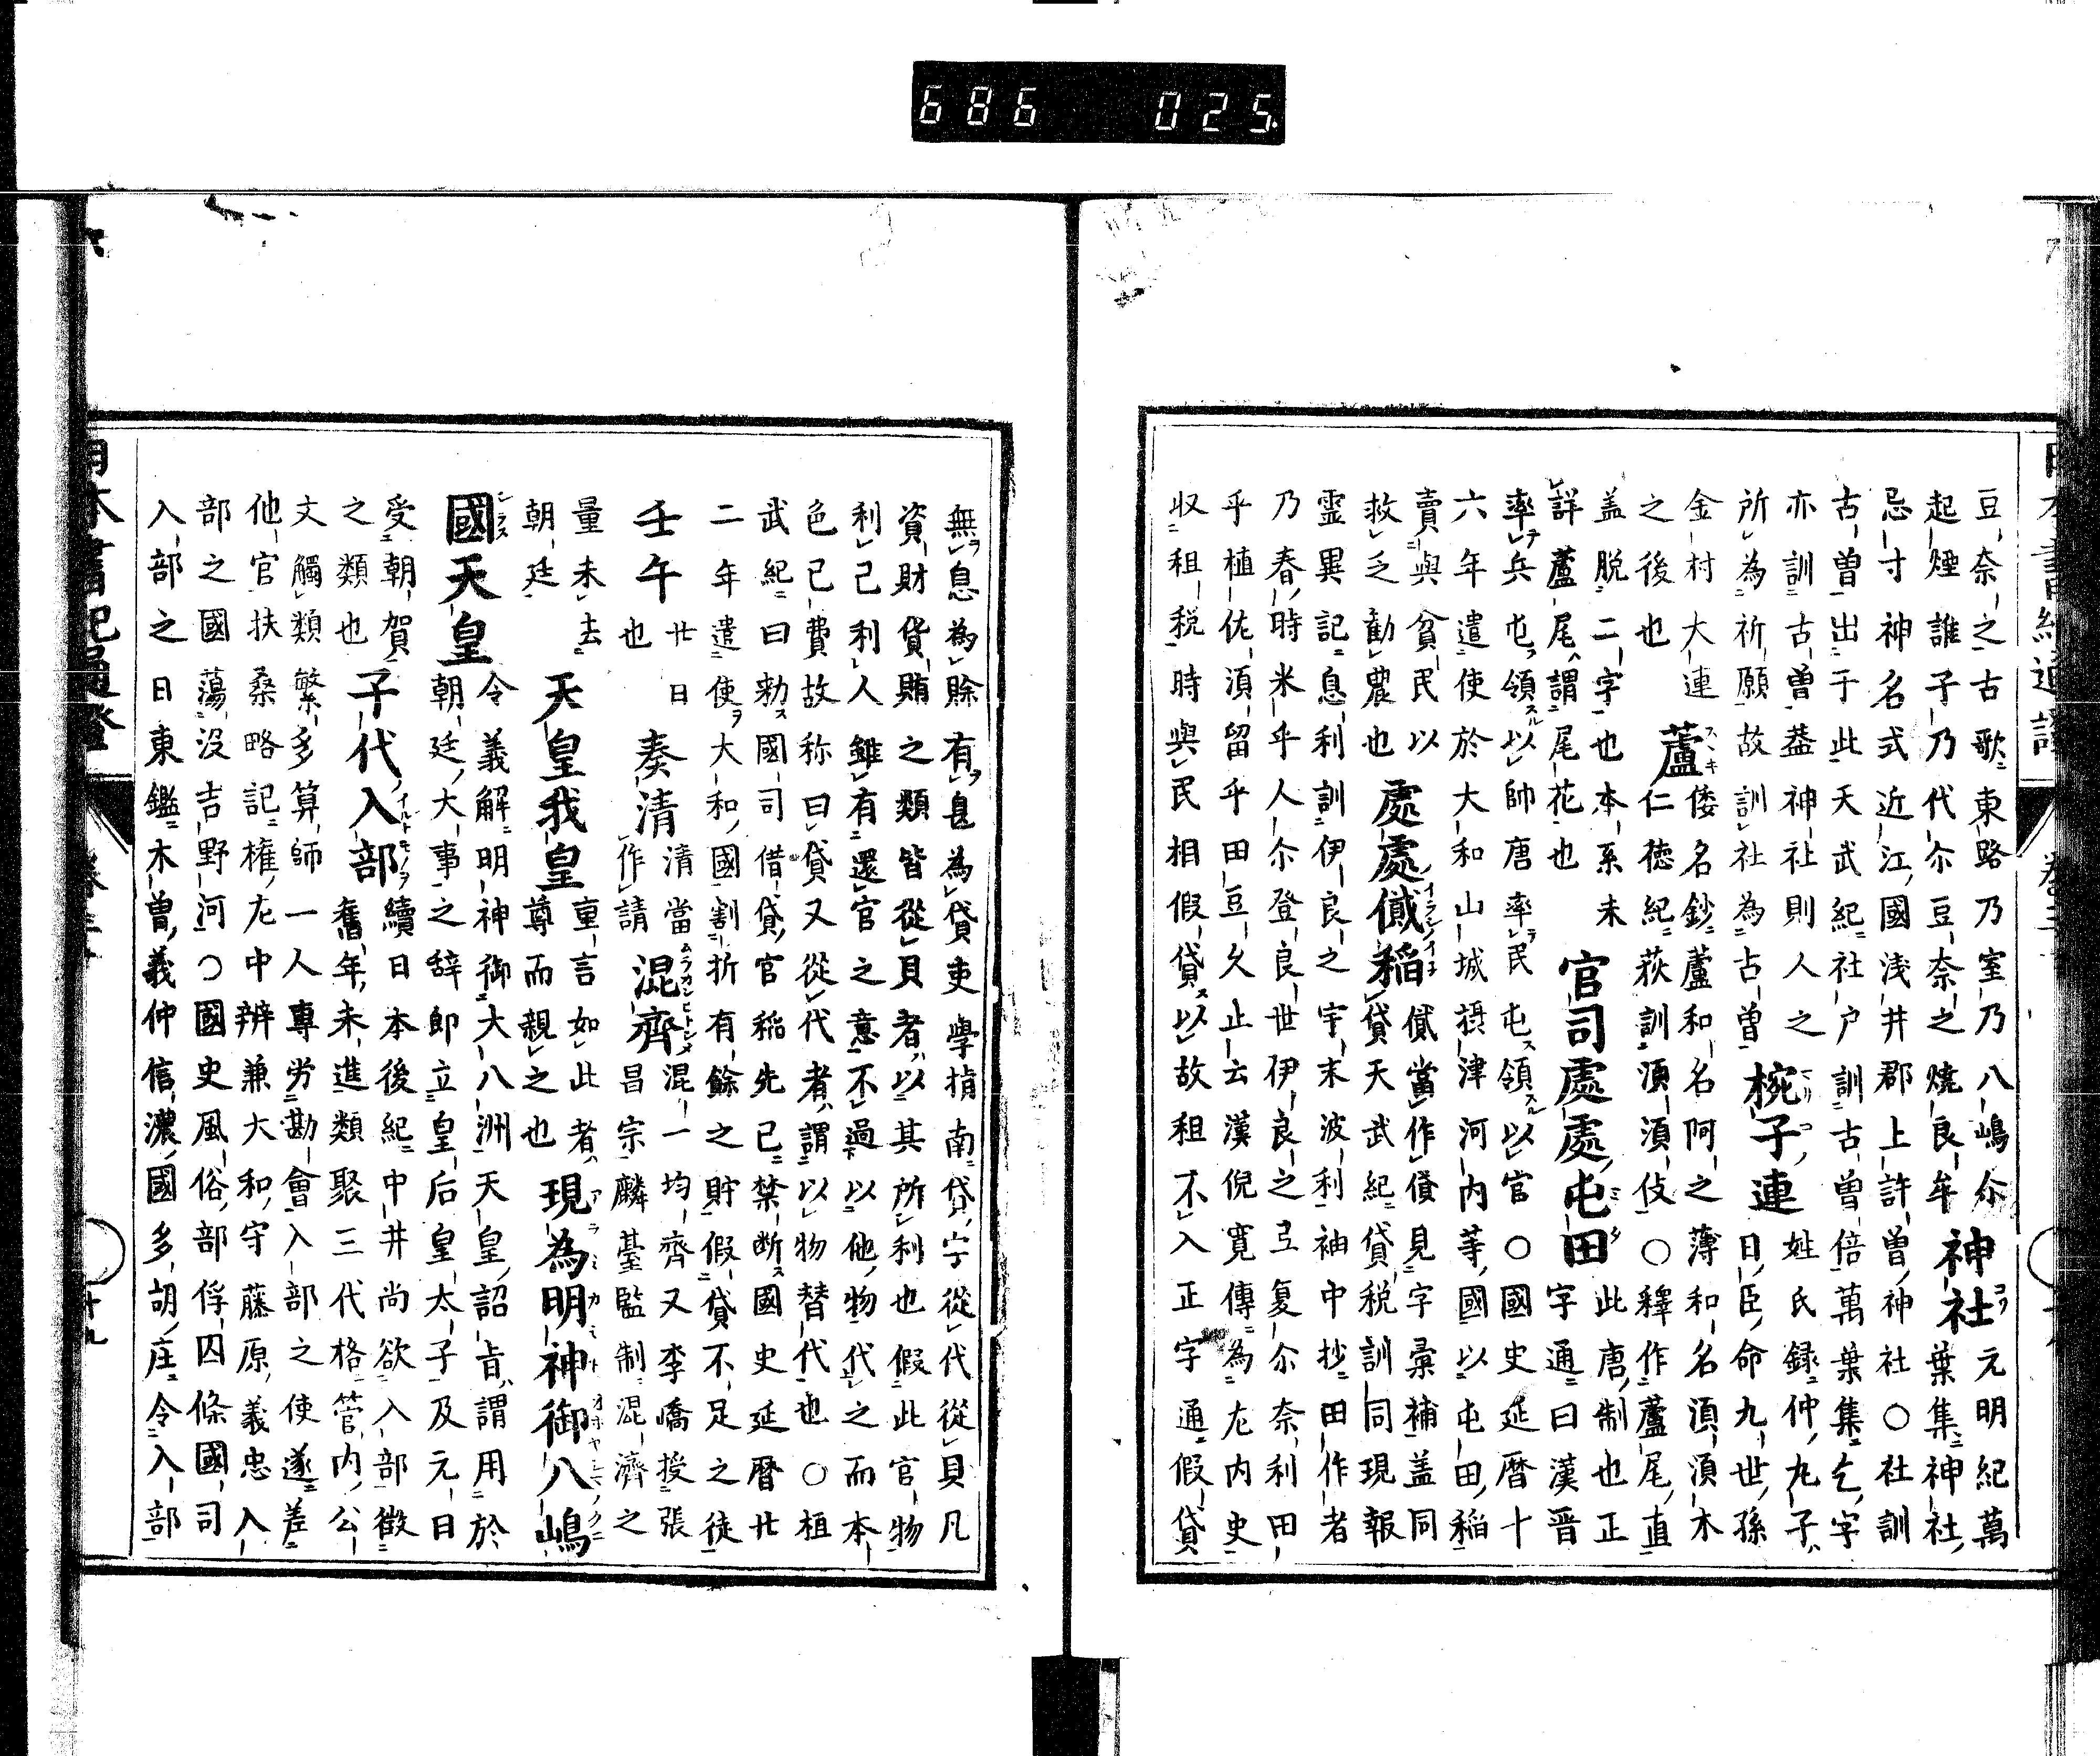 686 025
豆奈之古歌東路乃室乃八嶋尓神社元明紀萬
起煙誰子乃代尓豆奈之燒良牟神社葉集神社
忌寸神名式近江國浅井郡上許曽神社○社訓
古曽出于此天武紀社戸訓古曽倍萬葉集乞字
亦訓古曽蓋神社則人之
所為祈願故訓社為古曽椀子連姓氏録仲丸子
日臣命九世孫
金村大連
之後也蘆倭名鈔蘆和名阿之薄和名湏湏木
仁徳紀荻訓湏湏伎○釋作蘆尾直
盖脱二字也本系未
詳蘆尾謂尾花也官司處處屯田此唐制也正
字通曰漢晋
率兵屯領以帥唐率民屯領以官○國史延暦十
六年遣使於大和山城摂津河内等國以屯田稲
賣與貧民以
救乏勧農也處處儎稲貸儎當作貣見字彙補盖同
貸天武紀貸税訓同現報
霊異記息利訓伊良之宇末波利袖中抄田作者
乃春時米乎人尓登良世伊良之弖复尓奈利田
乎植佐湏留乎田豆久止云漢倪寛傳為左内史
収租税時與民相假貸以故租不入正字通假貸
無息為賒有息為貸吏學指南貸字從代從貝凡
資財貸賄之類皆從貝者以其所利也假此官物
利己利人雖有還官之意不過以他物代之而本
色已費故称曰貸又從代者謂以物替代也○植
武紀曰勅國司借貸官稲先已禁断國史延暦廿
二年遣使大和國割折有餘之貯假貸不足之徒
壬午廿日也奏清清當作請混齊混一均齊又李嶠授張
昌宗麟䑓監制混濟之
量未去
朝廷天皇我皇重言如此者
尊而親之也現為明神御八嶋
國天皇令義解明神御大八洲天皇詔旨謂用於
朝廷大事之辞即立皇后皇太子及元日
受朝賀
之類也子代入部續日本後紀中井尚欲入部徴
舊年未進類聚三代格管内公
文觸類繁多算師一人專労勘會入部之使遂差
他官扶桑略記權左中辨兼大和守藤原義忠入
部之國蕩没吉野河○國史風俗部俘囚條國司
入部之日東鑑木曽義仲信濃國多胡庄令入部